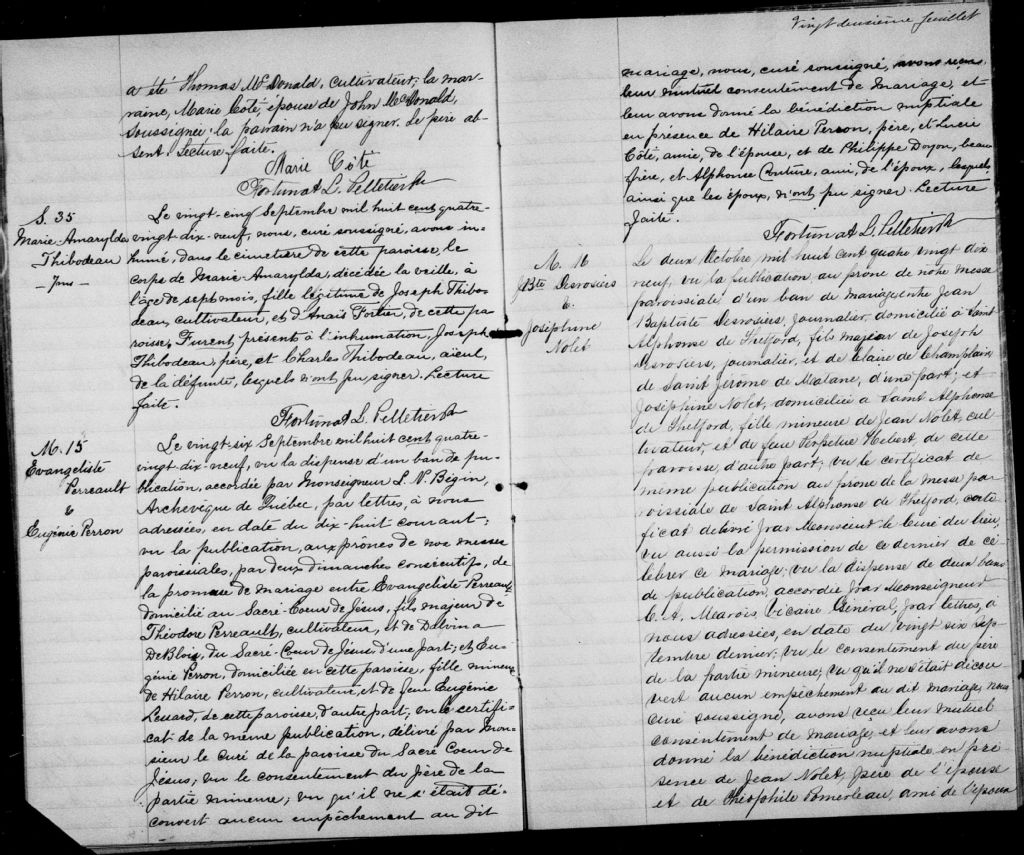 a été Thomas McDonald, cultivateur; la mar-
raine, Marie Coté, épouse de John McDonald,
soussignée; la parrain n'a pu signer. Le père ab-
sent. Lecture faite.
Marie Côté
Fortunat L. Pelletier Ptr
S. 35
Marie-Amarylda
Thibodeau
- 7ms -
Le vingt-cinq Septembre mil huit cent quatre-
vingt-dix-neuf, nous, curé soussigné, avons in-
humé, dans le cimetière de cette paroisse, le
corps de Marie-Amarylda, décédée la veille, à
l'âge de sept mois, fille légitime de Joseph Thibo-
deau, cultivateur, et d'Anaïs Fortier, de cette pa-
roisse. Furent présents à l'inhumation, Joseph
Thibodeau, père, et Charles Thibodeau, aïeul,
de la défunte, lesquels n'ont pu signer. Lecture
faite.
Fortunat L. Pelletier Ptr
M. 15
Evangeliste
Perreault
&
Eugénie Perron
Le vingt-six Septembre mil huit cent quatre-
vingt-dix-neuf, vu la dispense d'un ban de pu-
blication, accordée par Monseigneur L. N. Bégin,
Archevêque de Québec, par lettres, à nous
adressées, en date du dix-huit courant;
vu la publication, aux prônes de nos messes
paroissiales, par deux dimanches consécutifs, de
la promesse de mariage entre Evangeliste Perreault,
domicilié au Sacré-Coeur de Jésus, fils majeur de
Théodore Perreault, cultivateur, et de Delvina
DeBlois, du Sacré-Coeur de Jésus, d'une part; et Eu-
génie Perron, domiciliée en cette paroisse, fille mineure
de Hilaire Perron, cultivateur, et de feu Eugénie
Lessard, de cette paroisse, d'autre part; vu le certifi-
cat de la même publication, délivré par Mon-
sieur le curé de la paroisse du Sacré Coeur de
Jésus; vu le consentement du père de la
partie mineure; vu qu'il ne s'était dé-
couvert aucun empêchement au dit
Vingt deuxième feuillet
mariage, nous, curé soussigné, avons reçu
leur mutuel consentement de mariage, et
leur avons donné la bénédiction nuptiale
en présence de Hilaire Perron, père, et Lucie
Côté, amie, de l'épouse, et de Philippe Doyon, beau-
frère, et Alphonse Couture, ami, de l'époux, lesquels
ainsi que les époux, n'ont pu signer. Lecture
faite.
Fortunat L. Pelletier Ptr
M. 16
J Bte Desrosiers
&
Joséphine
Nolet
Le deux Octobre, mil huit cent quatre vingt dix
neuf, vu la publication au prône de notre messe
paroissiale d'un ban de mariage entre Jean
Baptiste Desrosiers, journalier, domicilié à Saint
Alphonse de Thetford, fils majeur de Joseph
Desrosiers, journalier, et de Claire de Champlain
de Saint Jérôme de Matane, d'une part; et
Joséphine Nolet, domiciliée à Saint Alphonse
de Thetford, fille mineure de Jean Nolet, cul-
tivateur, et de feue Perpétue Hébert, de cette
paroisse, d'autre part; vu le certificat de
même publication au prône de la messe pa-
roissiale de Saint Alphonse de Thetford, certi-
ficat délivré par Monsieur le Curé du lieu,
vu aussi la permission de ce dernier de cé-
lébrer ce mariage; vu la dispense de deux bans
de publication, accordée par Monseigneur
C. A. Marois, Vicaire Général, par lettres, à
nous adressées, en date du vingt six Sep-
tembre dernier; vu le consentement du père
de la partie mineure; vu qu'il ne s'était décou-
vert aucun empêchement au dit mariage, nous
curé soussigné, avons reçu leur mutuel
consentement de mariage, et leur avons
donné la bénédiction nuptiale en pré-
sence de Jean Nolet, père de l'épouse
et de Théophile Pomerleau, ami de l'époux